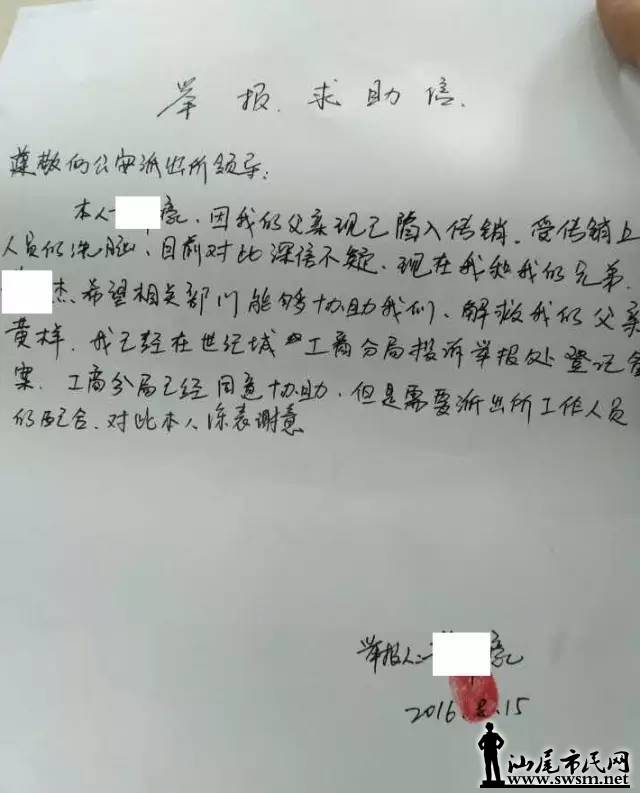 举报求助信.
谨敬的公安派出所领导:
本人 豪,因我的父亲现已陷入传销,受传销上
人员的洗脑,目前对此深信不疑,现在我和我的兄弟
杰希望相关部门能够协助我们,解救我们父亲
黄样,我已经在世纪城 工商分局投诉举报处登记备
案.工商分局已经同意协助,但是需要派出所工作人员
的配合,对此本人深表谢意
举报人: 豪
2016.8.15
汕尾市民网
www.swsm.net